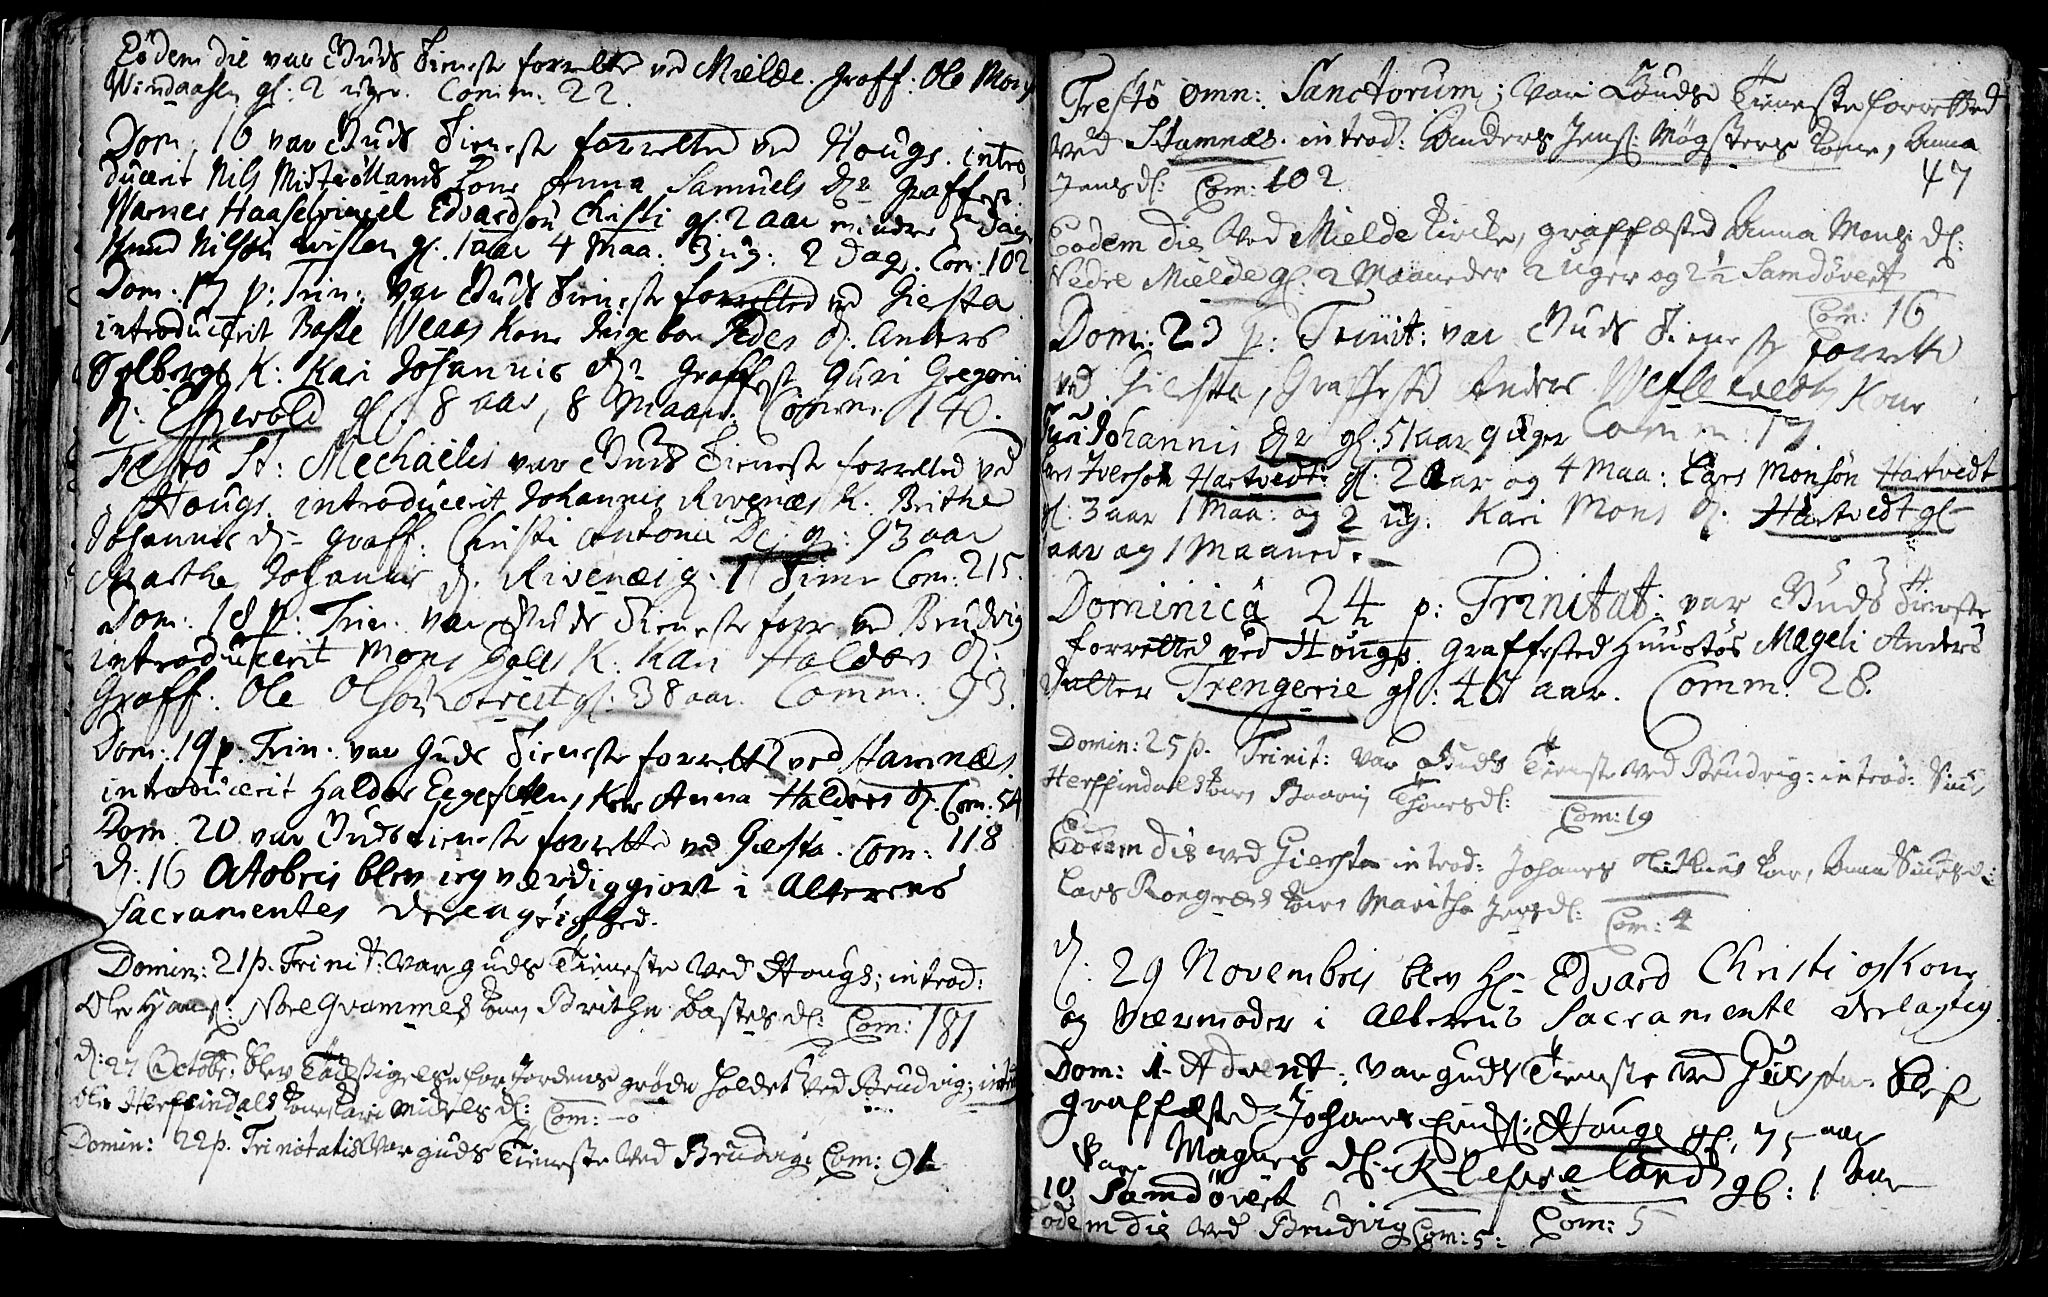 Eodem die var Guds Tieneste forrettet ved Mielde. Graff: Ole Mons
Windaasen gl: 2 uger. Comm: 22.
Dom: 16 var Guds Tieneste forretted ved Hougs. intro
ducerit Nils Mistrøllands Kone Anna Samuels dr. Graffest
Warner Haasewinckel Edvardsøn Christi gl: 2 aar mindre 5 dage
Knud Nilsøn gl. 1 aar 4 Maa. 3 ug: 2 Dage. Com: 102
Dom: 17 p: Trin: var Guds Tieneste forretted ved Giesta
introducerit Baste Weaas Kone Ingebor Peder d. Anders
Solbergs K: Kari Johannis dr. Graffest Guri Gregorii
d: gl: 8 aar, 8 Maan. Comm. 140.
Festo St: Mechaëlis var Guds Tieneste forretted ved
Hougs. introducerit Johannis Rivenæs K. Brithe
Johannis d. Graff: Christi Antonii D: g: 93 aar
Marthe Johannis d. Rivenæs g. 1 Time Com: 215.
Dom: 18 p: Trin. var Guds Tieneste forr ved Brudvig
introducerit Mons K. Kari Haldors d:
Graff: Ole Olsøn gl: 38 aar. Comm: 93.
Dom: 19 p. Trin. var Guds Tieneste forrettet ved Hamnæs.
introducerit Haldor Kone Anna Haldors d. Com: 54
Dom 20 var Guds Tieneste forrettet ved Giesta. Com: 118
d: 16 Octobris blev ieg værdiggiort i Alterens
Sacramentes deelagtighed.
Domin: 21 p. Trinit: Var Guds Tieneste Ved Hougs; introd:
Ole Hans: Norequammes Kone Brithe Bastes d: Com: 181
d: 27 Octobr: blev Tacksigelse for Jordens grøde holdet Ved Brudvig; introd
Ole Herfindals Kone Kari Nickels d: Com: 0
Domin: 22 p. Trinitatis Var Guds Tieneste Ved Brudvig: Com: 91
Festo Omn: Sanctorum; Var Guds Tieneste forretted
Ved Stamnæs. introd: Anders Jens: Møgsters Kone, Anna
Jensd: Com: 102
47
Eodem die Ved Mielde Kircke, graffæsted Anna Mons d:
Nedre Mielde gl: 2 Maaneder 2 Uger og 2½ Samdøvert
Com: 16
Dom: 23 p: Trinit: var Guds Tieneste forrettet
ved Giesta, Graffested Anders Kone
Guri Johannis dr gl: 51 aar 9 Uger Comm: 17.
Lars Iversøn Hartvedt gl: 2 Aar og 4 Maa: Lars Monsøn Hartvedt
gl: 3 aar 1 Maa: og 2 ug: Kari Mons d: Hartvedt gl
aar og 1 Maaned.
Dominica 24 p: Trinitat: var Guds Tieneste
forretted ved Hougs. Graffested Huustos Mageli Anders
Datter Trengerie gl: 48 aar. Comm: 28.
Domin: 25 p. Trinit: Var Guds Tieneste Ved Brudvig: introd:
Herffindals Kone d: Com: 19
Eodem die ved Giesta introd: Johanes Kone, Anna d:
Lars Rongves Kone Maritha d: Com: 4
d: 29 Novembris blev Hr Edvard Christi og Kone
og Værmoder i Alterens Sacramente deelagtig
Dom: 1 Advent: Var guds Tieneste Ved Giesta. Blef
graffæsted Johanes Hougs gl: 75 aar
Magnes d: gl: 1 Aar
10 Samdøvert Com: 5
Eodem die Ved Brudvig Com: 5: